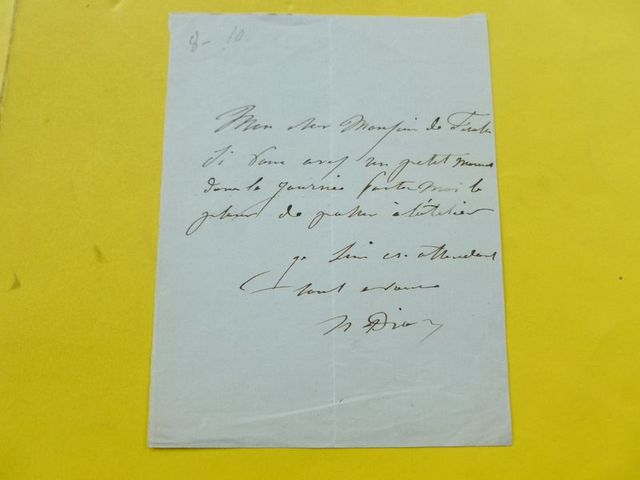 8- 10.
Mon cher Monsieur de
Si vous avez un petit moment
dans la journée faites moi le
plaisir de passer à l'atelier
je suis en attendant
tout à vous
N Diaz